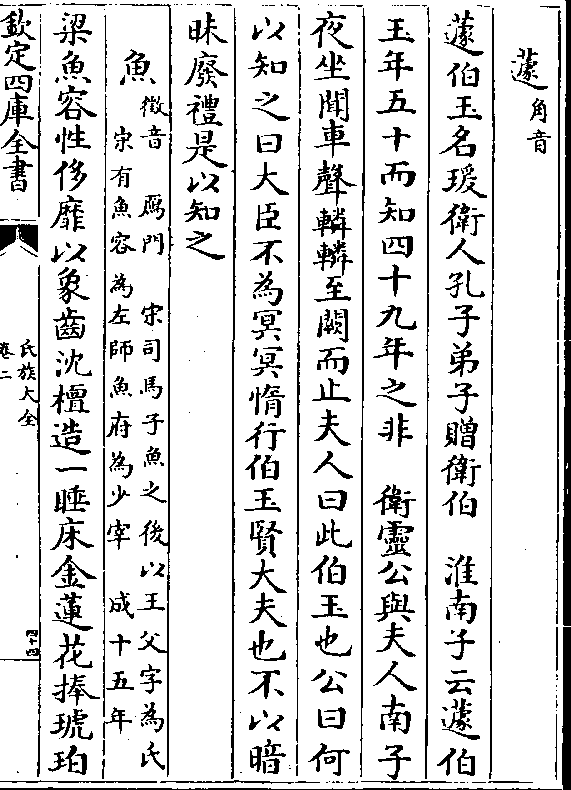 蘧角音
蘧伯玉名瑗衛人孔子弟子贈衛伯　淮南子云蘧伯
玉年五十而知四十九年之非　衛靈公與夫人南子
夜坐聞車聲轔轔至闕而止夫人曰此伯玉也公曰何
以知之曰大臣不為冥冥惰行伯玉賢大夫也不以暗
昧廢禮是以知之
魚徵音　鴈門　宋司馬子魚之後以王父字為氏
宋有魚容為左師魚府為少宰　成十五年
梁魚容性侈靡以象齒沈檀造一睡床金蓮花捧琥珀
欽定四庫全書
氏族大全
卷二
四十四